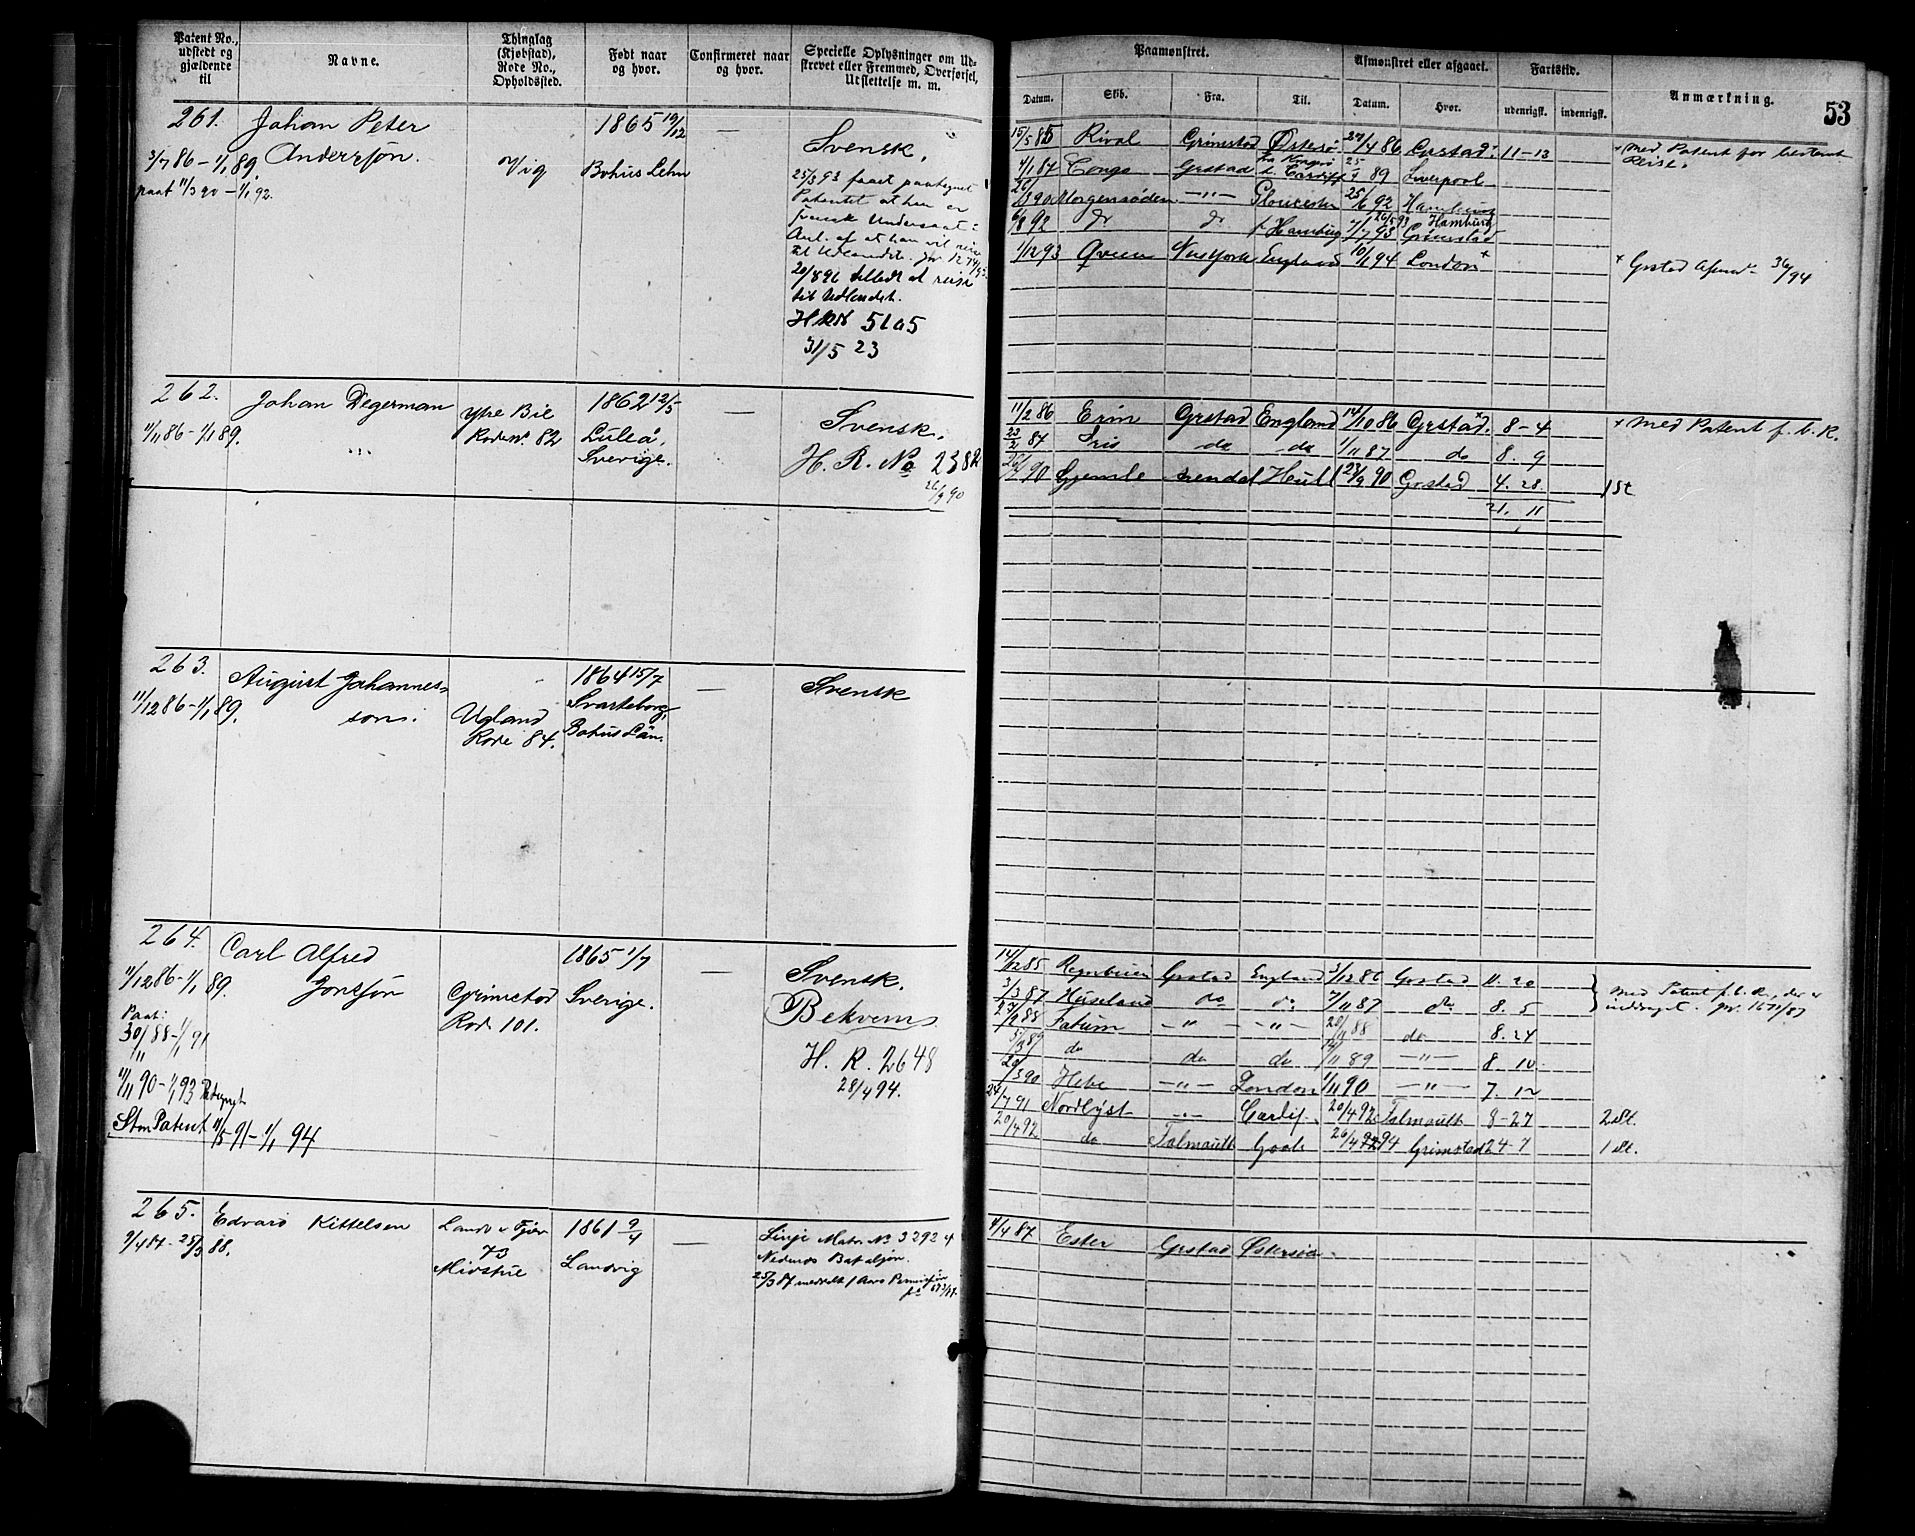 Patent No., udstedt og gjældende til
Navne.
Thinglag (Kjøbstad), Rode No., Opholdssted.
Født naar og hvor.
Confirmeret naar og hvor.
Specielle Oplysninger om Udskrevet eller Fremmed, Overførsel, Udslettelse m. m.
Paamønstret.
Datum. Skib. Fra. Til.
Afmønstret eller afgaaet.
Datum. Hvor.
Fartstid.
udenrigsk. indenrigsk.
Anmærkning.
53
261.
3/7 86 - 1/1 89.
paat 11/3 90 - 1/1 92.
Johan Peter
Anderssøn.
Vig
1865 19/12
Bohus Lehn
—
Svensk.
25/3 93 faaet paategnet
Patentet at han er
svensk Undersaat i
Anl. af at han vil reise
til Udlandet.
20/8 96 tilladt at reise
til Udlandet.
5105
31/5 23
15/5 85 Rival Grimstad Østersø 27/4 86 Grstad+ 11-13
+ med Patent for bestemt
Reise.
4/1 87 Congo Grstad 25/1 89 Liverpool
26/3 90 Morgenrøden —"— Gloucester 25/6 92 Hamburg
6/8 92 do do Hamburg 7/7 93 Grimstad
26/5 93 Hamburg
1/12 93 Qveen NewYork England 10/1 94 London+
+ Grstad Afm. 36/94
262.
11/11 86 - 1/1 89.
Johan Degerman
Ytre Bie
Rode No. 82
1862 12/5
Luleå,
Sverige.
—
Svensk.
H. R. No 2382
26/9 90
11/2 86 Erin Grstad England 14/10 86 Grstad+. 8-4
+ med Patent f. b. R.
22/2 87 Iris do do 1/11 87 do 8. 9
26/4 90 Gjemle Arendal Hull 24/9 90 Grstad 4. 28.
1 St
21. 11
263.
11/12 86 - 1/1 89.
August Johannes-
son.
Ugland
Rode 84.
1864 15/7
Svarteborg,
Bohus Län.
—
Svensk
264.
11/12 86 - 1/1 89.
Paat:
30/11 88 - 1/1 91
11/11 90 - 1/1 93
Patent 11/5 91 - 1/1 94
Carl Alfred
Jonssøn
Grimstad
Rode 101.
1865 1/7
Sverige.
—
Svensk.
Bekvem
H. R. 2648
28/4 94.
14/12 85 Regnbuen Grstad England 3/12 86 Grstad 11. 20
med Patent f. b. R., der er
inddraget.
3/3 87 Huseland do do 7/11 87 do 8. 5
27/2 88 Fatum —"— —"— 20/11 88 do 8. 24
5/3 89 do do do 14/11 89 —"— 8. 10
20/3 90 Hebe —"— London 1/11 90 —"— 7. 12
24/7 91 Nordlyst —"— Cardif. 20/4 92 Falmouth 8-27
2 St.
20/4 92 do Falmouth Goole 26/4 94 Grimstad 24-7
1 St.
265.
9/4 87 - 25/3 88.
Edvard Kittelsen
Landv & Fjære
43
Midstue
1861 9/4
Landvig
—
Linje Matr. No 3292 4
Nedenes Bataljon.
25/3 87 meddelt 1 Aars Permission
4/4 87 Ester Grstad Østersøen